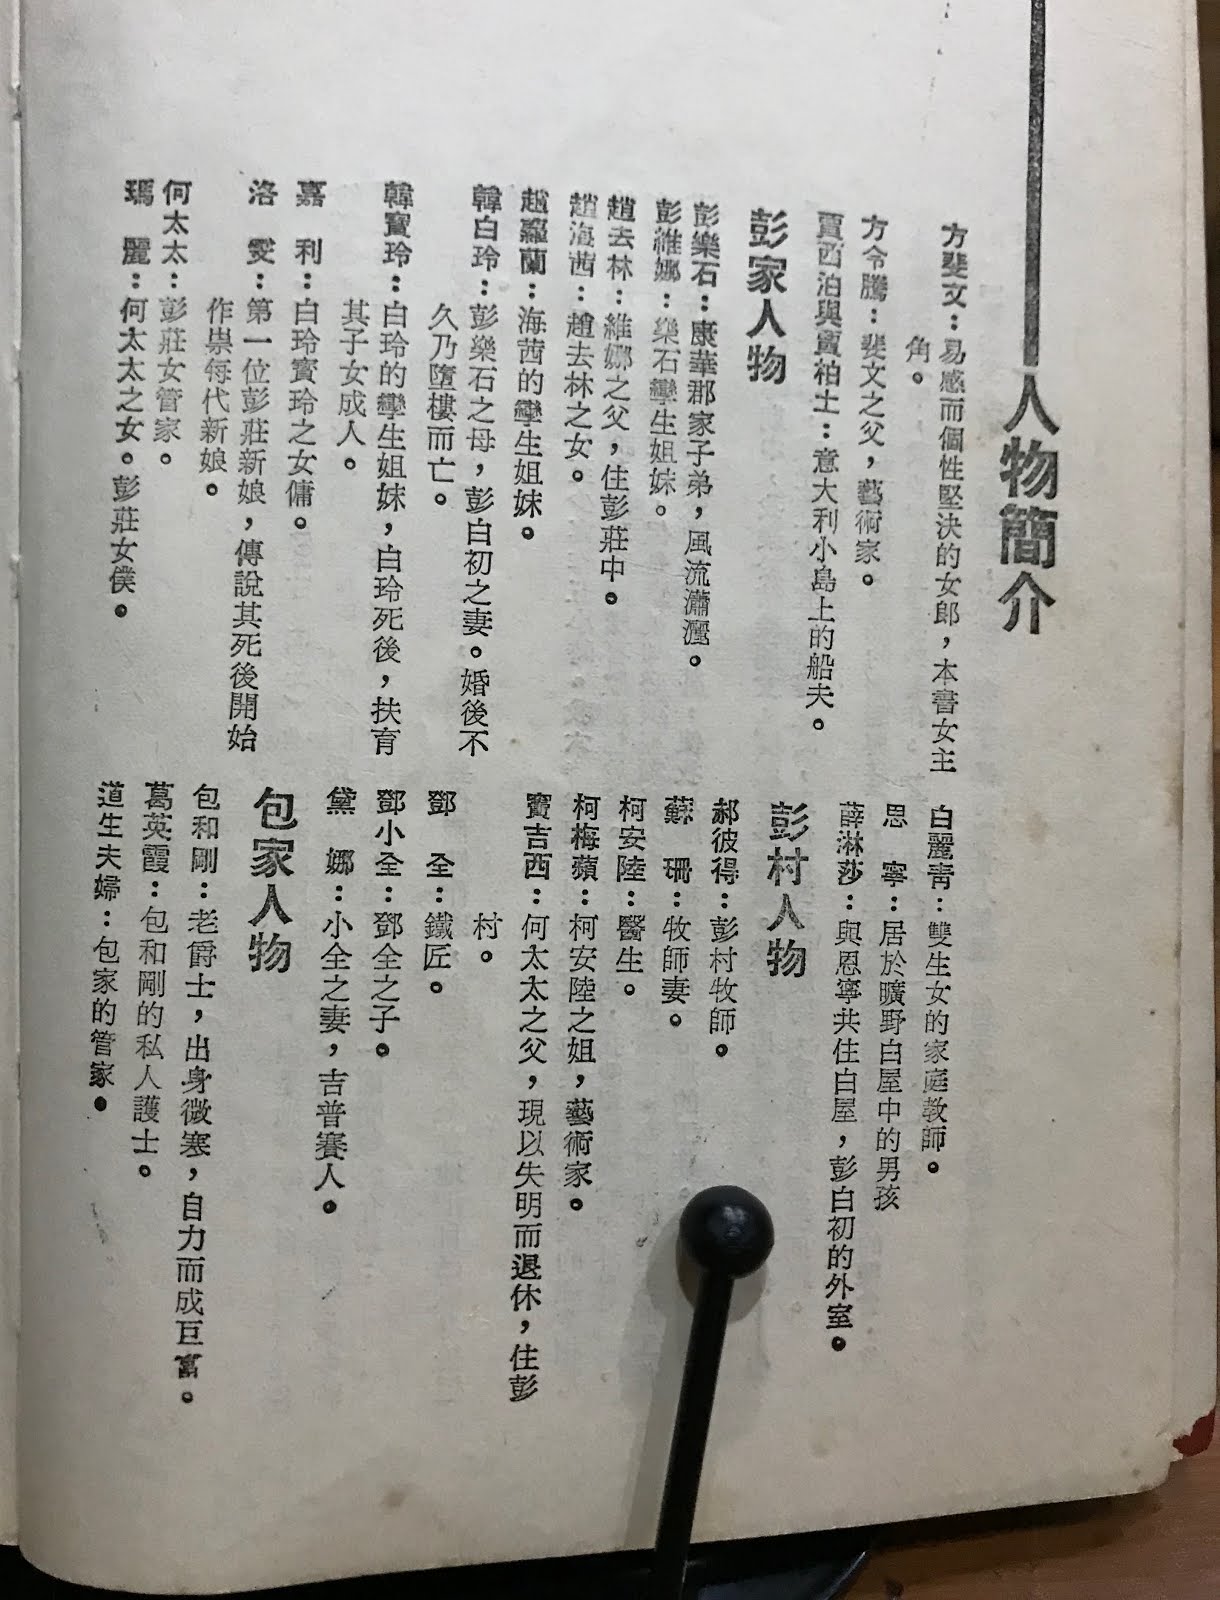 人物簡介
方斐文：易感而個性堅決的女郎，本書女主
角。
方令騰：斐文之父，藝術家。
賈西泊與賈柏士：意大利小島上的船夫。
彭家人物
彭樂石：康華郡家子弟，風流瀟灑。
彭維娜：樂石孿生姐妹。
趙去林：維娜之父，住彭莊中。
趙海茜：趙去林之女。
趙蘿蘭：海茜的孿生姐妹。
韓白玲：彭樂石之母，彭白初之妻。婚後不
久乃墮樓而亡。
韓寶玲：白玲的孿生姐妹，白玲死後，扶育
其子女成人。
嘉　利：白玲寶玲之女傭。
洛　雯：第一位彭莊新娘，傳說其死後開始
作祟每代新娘。
何太太：彭莊女管家。
瑪　麗：何太太之女。彭莊女僕。
白麗靑：雙生女的家庭教師。
思　寧：居於曠野白屋中的男孩
薛淋莎：與恩寧共住白屋，彭白初的外室。
彭村人物
郝彼得：彭村牧師。
蘇　珊：牧師妻。
柯安陸：醫生。
柯梅蘋：柯安陸之姐，藝術家。
竇吉西：何太太之父，現以失明而退休，住彭
村。
鄧　全：鐵匠。
鄧小全：鄧全之子。
黛　娜：小全之妻，吉普賽人。
包家人物
包和剛：老爵士，出身微寒，自力而成巨富。
葛英霞：包和剛的私人護士。
道生夫婦：包家的管家。